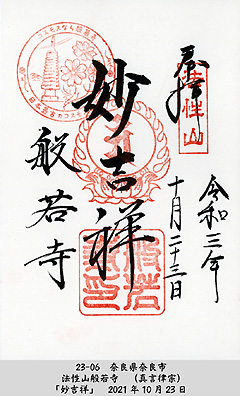 奉拝
法性山
令和三年
十月二十三日
妙吉祥
般若寺
23-06 奈良県奈良市
法性山般若寺 (真言律宗)
「妙吉祥」 2021年10月23日